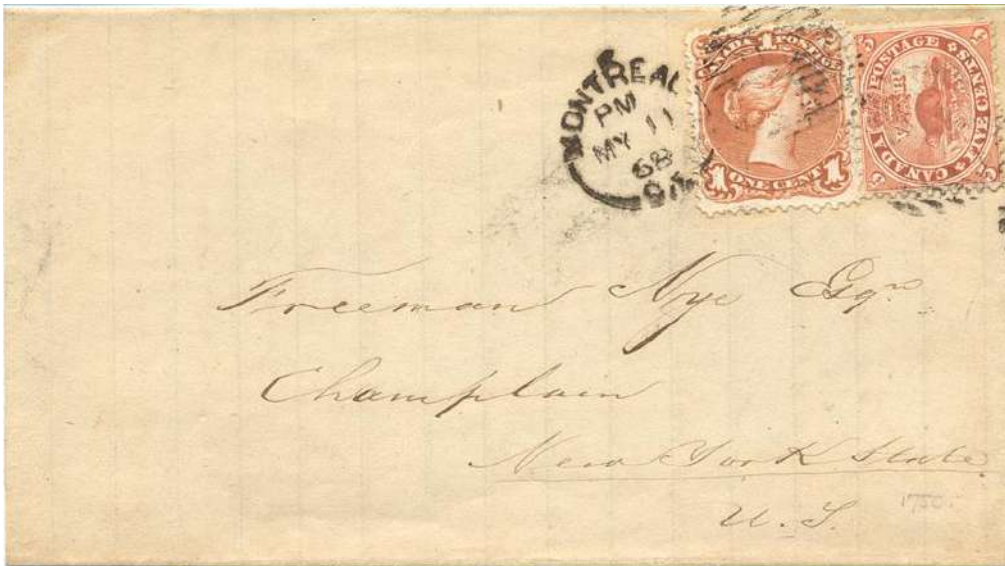 MONTREAL
PM
MY 11
68
CANADA POSTAGE
1
1 ONE CENT 1
CANADA POSTAGE FIVE CENTS
5 5 5 5
V R
Freeman Nye Esqre
Champlain
New York State
U. S.
1750.